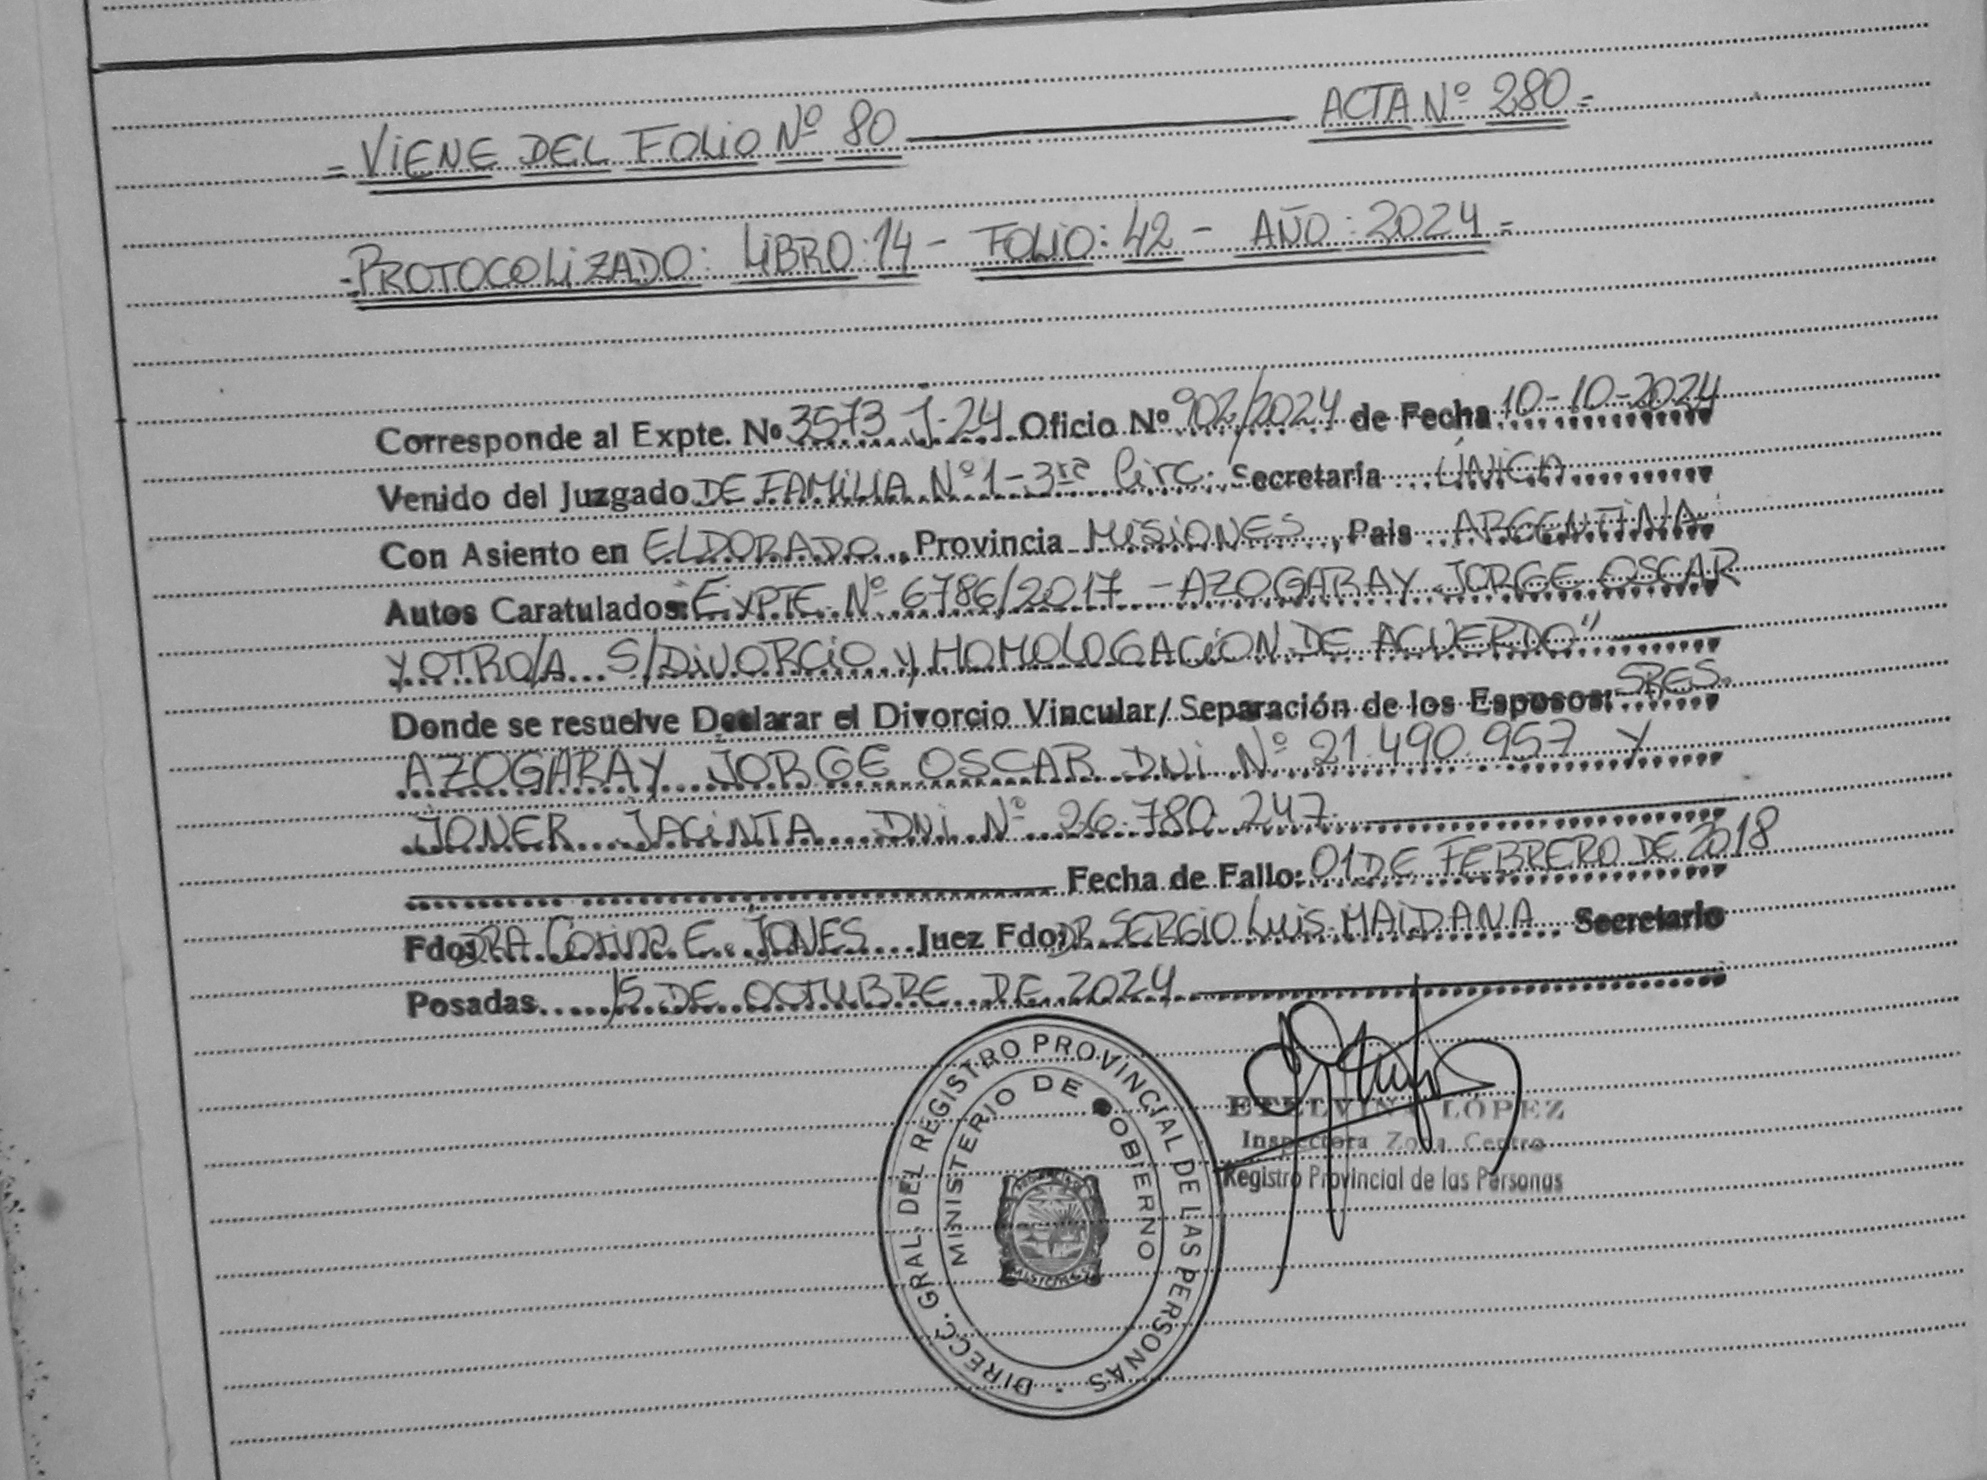 = VIENE DEL FOLIO Nº 80 ACTA Nº 280 =
- PROTOCOLIZADO: LIBRO: 14 - FOLIO: 42 - AÑO: 2024 =
Corresponde al Expte. Nº 3573 J-24 Oficio Nº 902/2024 de Fecha 10-10-2024
Venido del Juzgado DE FAMILIA Nº 1 - 3ra Circ. Secretaría ÚNICA
Con Asiento en ELDORADO, Provincia MISIONES, País ARGENTINA
Autos Caratulados: EXPTE. Nº 6786/2017 - AZOGARAY JORGE OSCAR
Y OTRO/A S/DIVORCIO y HOMOLOGACIÓN DE ACUERDO"
Donde se resuelve Declarar el Divorcio Vincular/Separación de los Esposos: SRES.
AZOGARAY JORGE OSCAR DNI Nº 21.490.957 Y
JONER JACINTA DNI Nº 26.780.247
Fecha de Fallo: 01 DE FEBRERO DE 2018
Fdo: DRA. Corina E. JONES Juez Fdo: DR. SERGIO LUIS MAIDANA Secretario
Posadas 15 DE OCTUBRE DE 2024
DIRECC. GRAL. DEL REGISTRO PROVINCIAL DE LAS PERSONAS
MINISTERIO DE GOBIERNO
MISIONES
ETELVINA LÓPEZ
Inspectora Zona Centro
Registro Provincial de las Personas